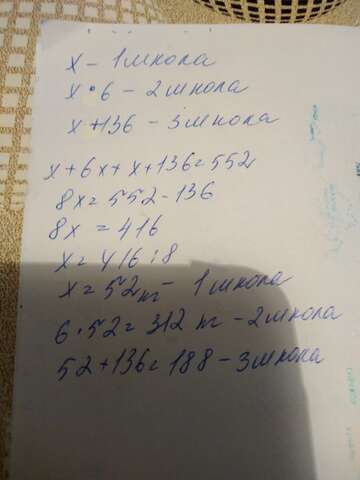 x - 1 школа
x · 6 - 2 школа
x + 136 - 3 школа
x + 6x + x + 136 = 552
8x = 552 - 136
8x = 416
x = 416 : 8
x = 52 кг - 1 школа
6 · 52 = 312 кг - 2 школа
52 + 136 = 188 - 3 школа